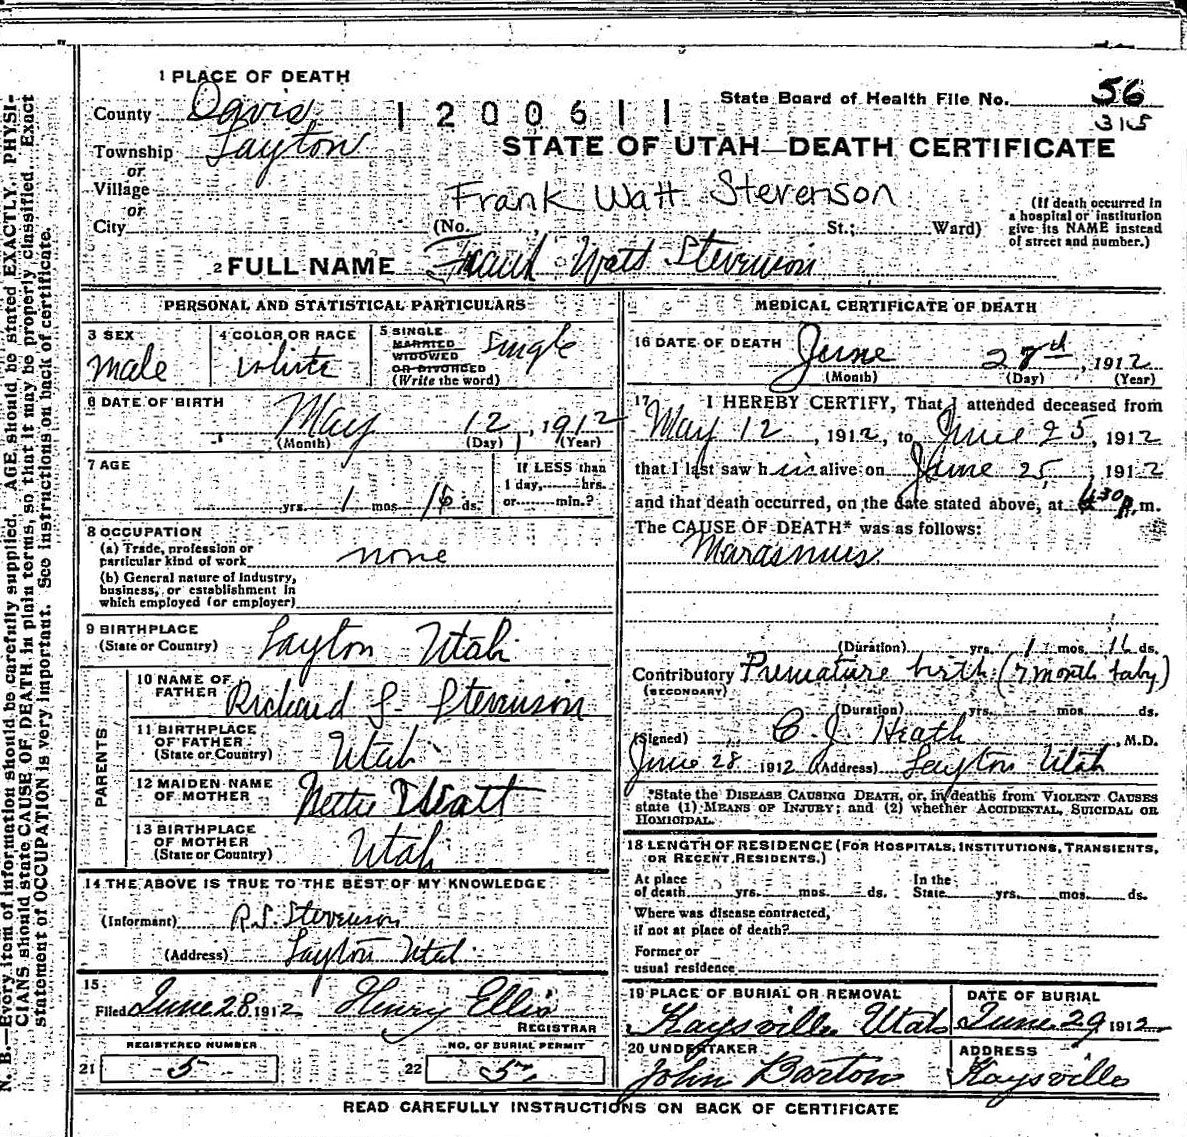 1 PLACE OF DEATH
County Davis
1200611
State Board of Health File No. 56
315
Township Layton
STATE OF UTAH—DEATH CERTIFICATE
or
Village
Frank Watt Stevenson
or
City (No. St.; Ward)
(If death occurred in a hospital or institution give its NAME instead of street and number.)
2 FULL NAME Frank Watt Stevenson
PERSONAL AND STATISTICAL PARTICULARS
3 SEX
male
4 COLOR OR RACE
white
5 SINGLE
MARRIED
WIDOWED
OR DIVORCED
(Write the word)
Single
6 DATE OF BIRTH
May 12, 1912
(Month) (Day) (Year)
7 AGE
yrs. 1 mos. 16 ds.
If LESS than
1 day, hrs.
or min.?
8 OCCUPATION
(a) Trade, profession or
particular kind of work none
(b) General nature of Industry,
business, or establishment in
which employed (or employer)
9 BIRTHPLACE
(State or Country) Layton Utah
PARENTS
10 NAME OF
FATHER Richard S. Stevenson
11 BIRTHPLACE
OF FATHER
(State or Country) Utah
12 MAIDEN NAME
OF MOTHER Nettie Watt
13 BIRTHPLACE
OF MOTHER
(State or Country) Utah
14 THE ABOVE IS TRUE TO THE BEST OF MY KNOWLEDGE
(Informant) R.S. Stevenson
(Address) Layton Utah
15
Filed June 28 1912 Henry Ellis
REGISTRAR
REGISTERED NUMBER
21 5
NO. OF BURIAL PERMIT
22 5
MEDICAL CERTIFICATE OF DEATH
16 DATE OF DEATH
June 28th, 1912
(Month) (Day) (Year)
17 I HEREBY CERTIFY, That I attended deceased from
May 12, 1912, to June 25, 1912
that I last saw him alive on June 25, 1912
and that death occurred, on the date stated above, at 630 p.m.
The CAUSE OF DEATH* was as follows:
Marasmus.
(Duration) yrs. 1 mos. 16 ds.
Contributory Premature birth (7 month baby)
(SECONDARY)
(Duration) yrs. mos. ds.
(Signed) C. J. Heath, M.D.
June 28 1912 (Address) Layton Utah
*State the DISEASE CAUSING DEATH, or, in deaths from VIOLENT CAUSES
state (1) MEANS OF INJURY; and (2) whether ACCIDENTAL, SUICIDAL OR
HOMICIDAL.
18 LENGTH OF RESIDENCE (FOR HOSPITALS, INSTITUTIONS, TRANSIENTS,
OR RECENT RESIDENTS.)
At place
of death yrs. mos. ds.
In the
State yrs. mos. ds.
Where was disease contracted,
if not at place of death?
Former or
usual residence
19 PLACE OF BURIAL OR REMOVAL
Kaysville Utah
DATE OF BURIAL
June 29 1912
20 UNDERTAKER
John Barton
ADDRESS
Kaysville
READ CAREFULLY INSTRUCTIONS ON BACK OF CERTIFICATE
N. B.—Every item of information should be carefully supplied. AGE should be stated EXACTLY. PHYSI-
CIANS should state CAUSE OF DEATH in plain terms, so that it may be properly classified. Exact
statement of OCCUPATION is very important. See instructions on back of certificate.